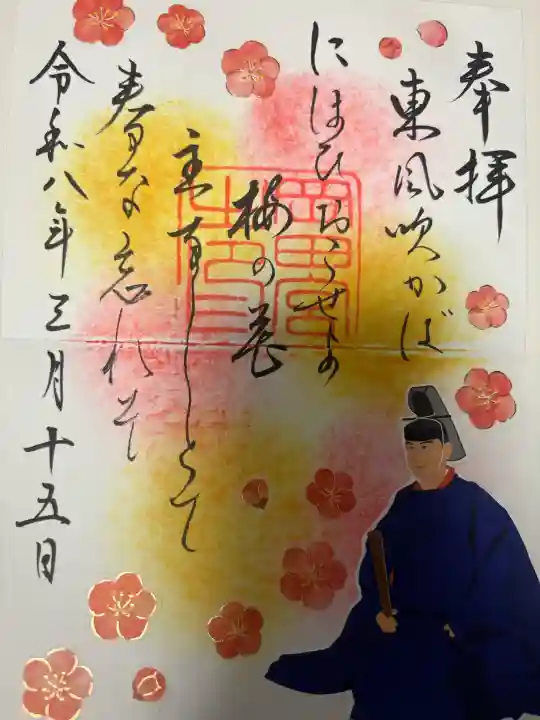 奉拝
東風吹かば
にほひおこせよ
梅の花
主なしとて
春な忘れそ
令和八年三月十五日